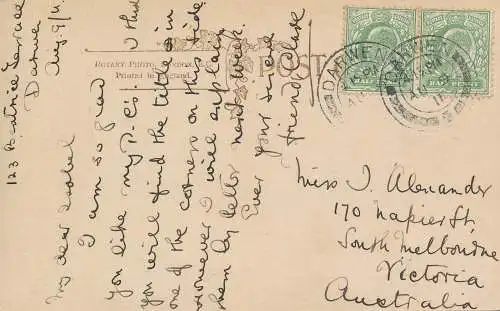 123 Beatrice Terrace
Darwen
Aug. 9/11
My dear Isabel
I am so glad
you like my P.C's. I think
you will find the titles in
one of the corners on this side
However I will explain
them by letter next week.
Ever your sincere
friend
ROTARY PHOTO, LONDON
Printed in England.
POST
DARWEN
DARWEN
Miss I. Alexander
170 Napier St,
South Melbourne
Victoria
Australia